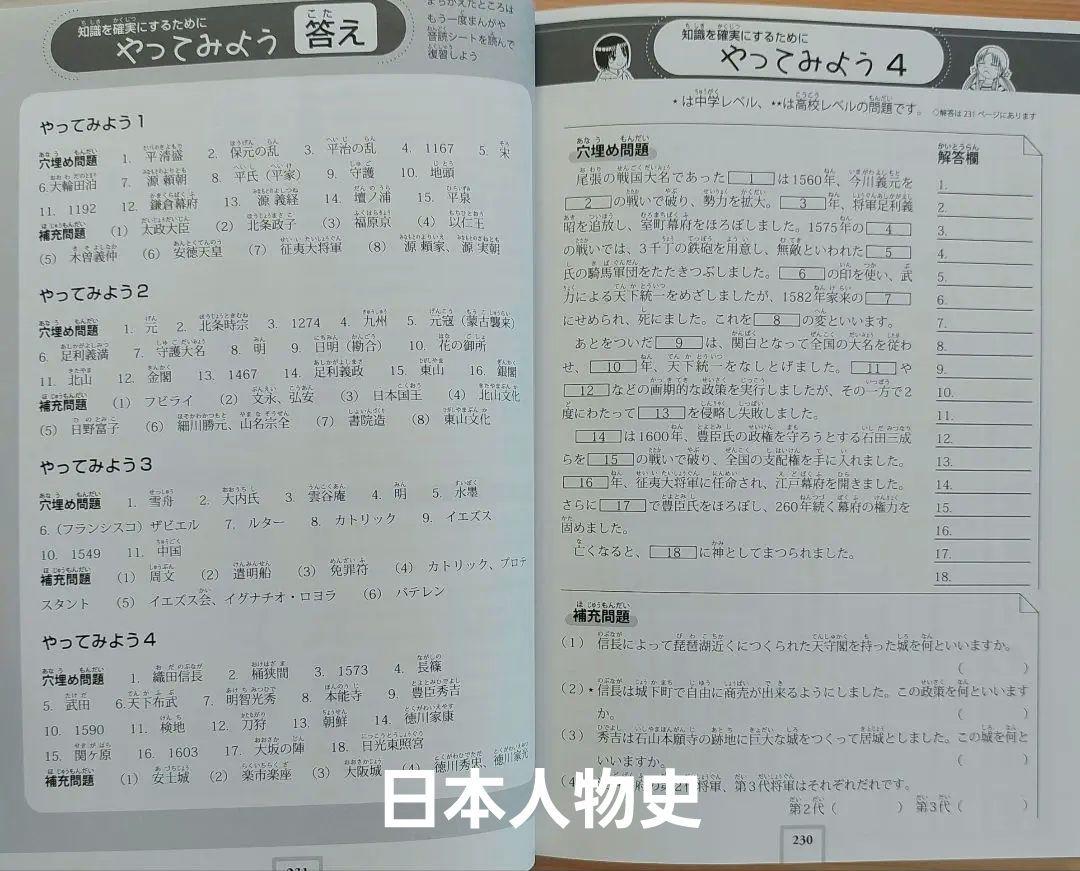 知識を確実にするために
やってみよう 答え
まちがえたところは
もう一度まんがや
音読シートを読んで
復習しよう
やってみよう1
穴埋め問題 1. 平清盛 2. 保元の乱 3. 平治の乱 4. 1167 5. 宋
6.大輪田泊 7. 源 頼朝 8. 平氏(平家) 9. 守護 10. 地頭
11. 1192 12. 鎌倉幕府 13. 源 義経 14. 壇ノ浦 15. 平泉
補充問題 (1) 太政大臣 (2) 北条政子 (3) 福原京 (4) 以仁王
(5) 木曽義仲 (6) 安徳天皇 (7) 征夷大将軍 (8) 源 頼家、源 実朝
やってみよう2
穴埋め問題 1. 元 2. 北条時宗 3. 1274 4. 九州 5. 元寇(蒙古襲来)
6. 足利義満 7. 守護大名 8. 明 9. 日明(勘合) 10. 花の御所
11. 北山 12. 金閣 13. 1467 14. 足利義政 15. 東山 16. 銀閣
補充問題 (1) フビライ (2) 文永、弘安 (3) 日本国王 (4) 北山文化
(5) 日野富子 (6) 細川勝元、山名宗全 (7) 書院造 (8) 東山文化
やってみよう3
穴埋め問題 1. 雪舟 2. 大内氏 3. 雲谷庵 4. 明 5. 水墨
6.(フランシスコ)ザビエル 7. ルター 8. カトリック 9. イエズス
10. 1549 11. 中国
補充問題 (1) 周文 (2) 遣明船 (3) 免罪符 (4) カトリック、プロテ
スタント (5) イエズス会、イグナチオ・ロヨラ (6) バテレン
やってみよう4
穴埋め問題 1. 織田信長 2. 桶狭間 3. 1573 4. 長篠
5. 武田 6.天下布武 7. 明智光秀 8. 本能寺 9. 豊臣秀吉
10. 1590 11. 検地 12. 刀狩 13. 朝鮮 14. 徳川家康
15. 関ヶ原 16. 1603 17. 大坂の陣 18. 日光東照宮
補充問題 (1) 安土城 (2) 楽市楽座 (3) 大阪城 (4) 徳川秀忠、徳川家光
知識を確実にするために
やってみよう4
★は中学レベル、★★は高校レベルの問題です。 ◇解答は231ページにあります
穴埋め問題
尾張の戦国大名であった 1 は1560年、今川義元を
2 の戦いで破り、勢力を拡大。 3 年、将軍足利義
昭を追放し、室町幕府をほろぼしました。1575年の 4
の戦いでは、3千丁の鉄砲を用意し、無敵といわれた 5
氏の騎馬軍団をたたきつぶしました。 6 の印を使い、武
力による天下統一をめざしましたが、1582年家来の 7
にせめられ、死にました。これを 8 の変といいます。
あとをついだ 9 は、関白となって全国の大名を従わ
せ、 10 年、天下統一をなしとげました。 11 や
12 などの画期的な政策を実行しましたが、その一方で2
度にわたって 13 を侵略し失敗しました。
14 は1600年、豊臣氏の政権を守ろうとする石田三成
らを 15 の戦いで破り、全国の支配権を手に入れました。
16 年、征夷大将軍に任命され、江戸幕府を開きました。
さらに 17 で豊臣氏をほろぼし、260年続く幕府の権力を
固めました。
亡くなると、 18 に神としてまつられました。
解答欄
1.
2.
3.
4.
5.
6.
7.
8.
9.
10.
11.
12.
13.
14.
15.
16.
17.
18.
補充問題
(1) 信長によって琵琶湖近くにつくられた天守閣を持った城を何といいますか。
( )
(2)★信長は城下町で自由に商売が出来るようにしました。この政策を何といいます
か。 ( )
(3) 秀吉は石山本願寺の跡地に巨大な城をつくって居城としました。この城を何と
いいますか。 ( )
(4) 第2代将軍、第3代将軍はそれぞれだれです。
第2代( ) 第3代( )
日本人物史
230
231